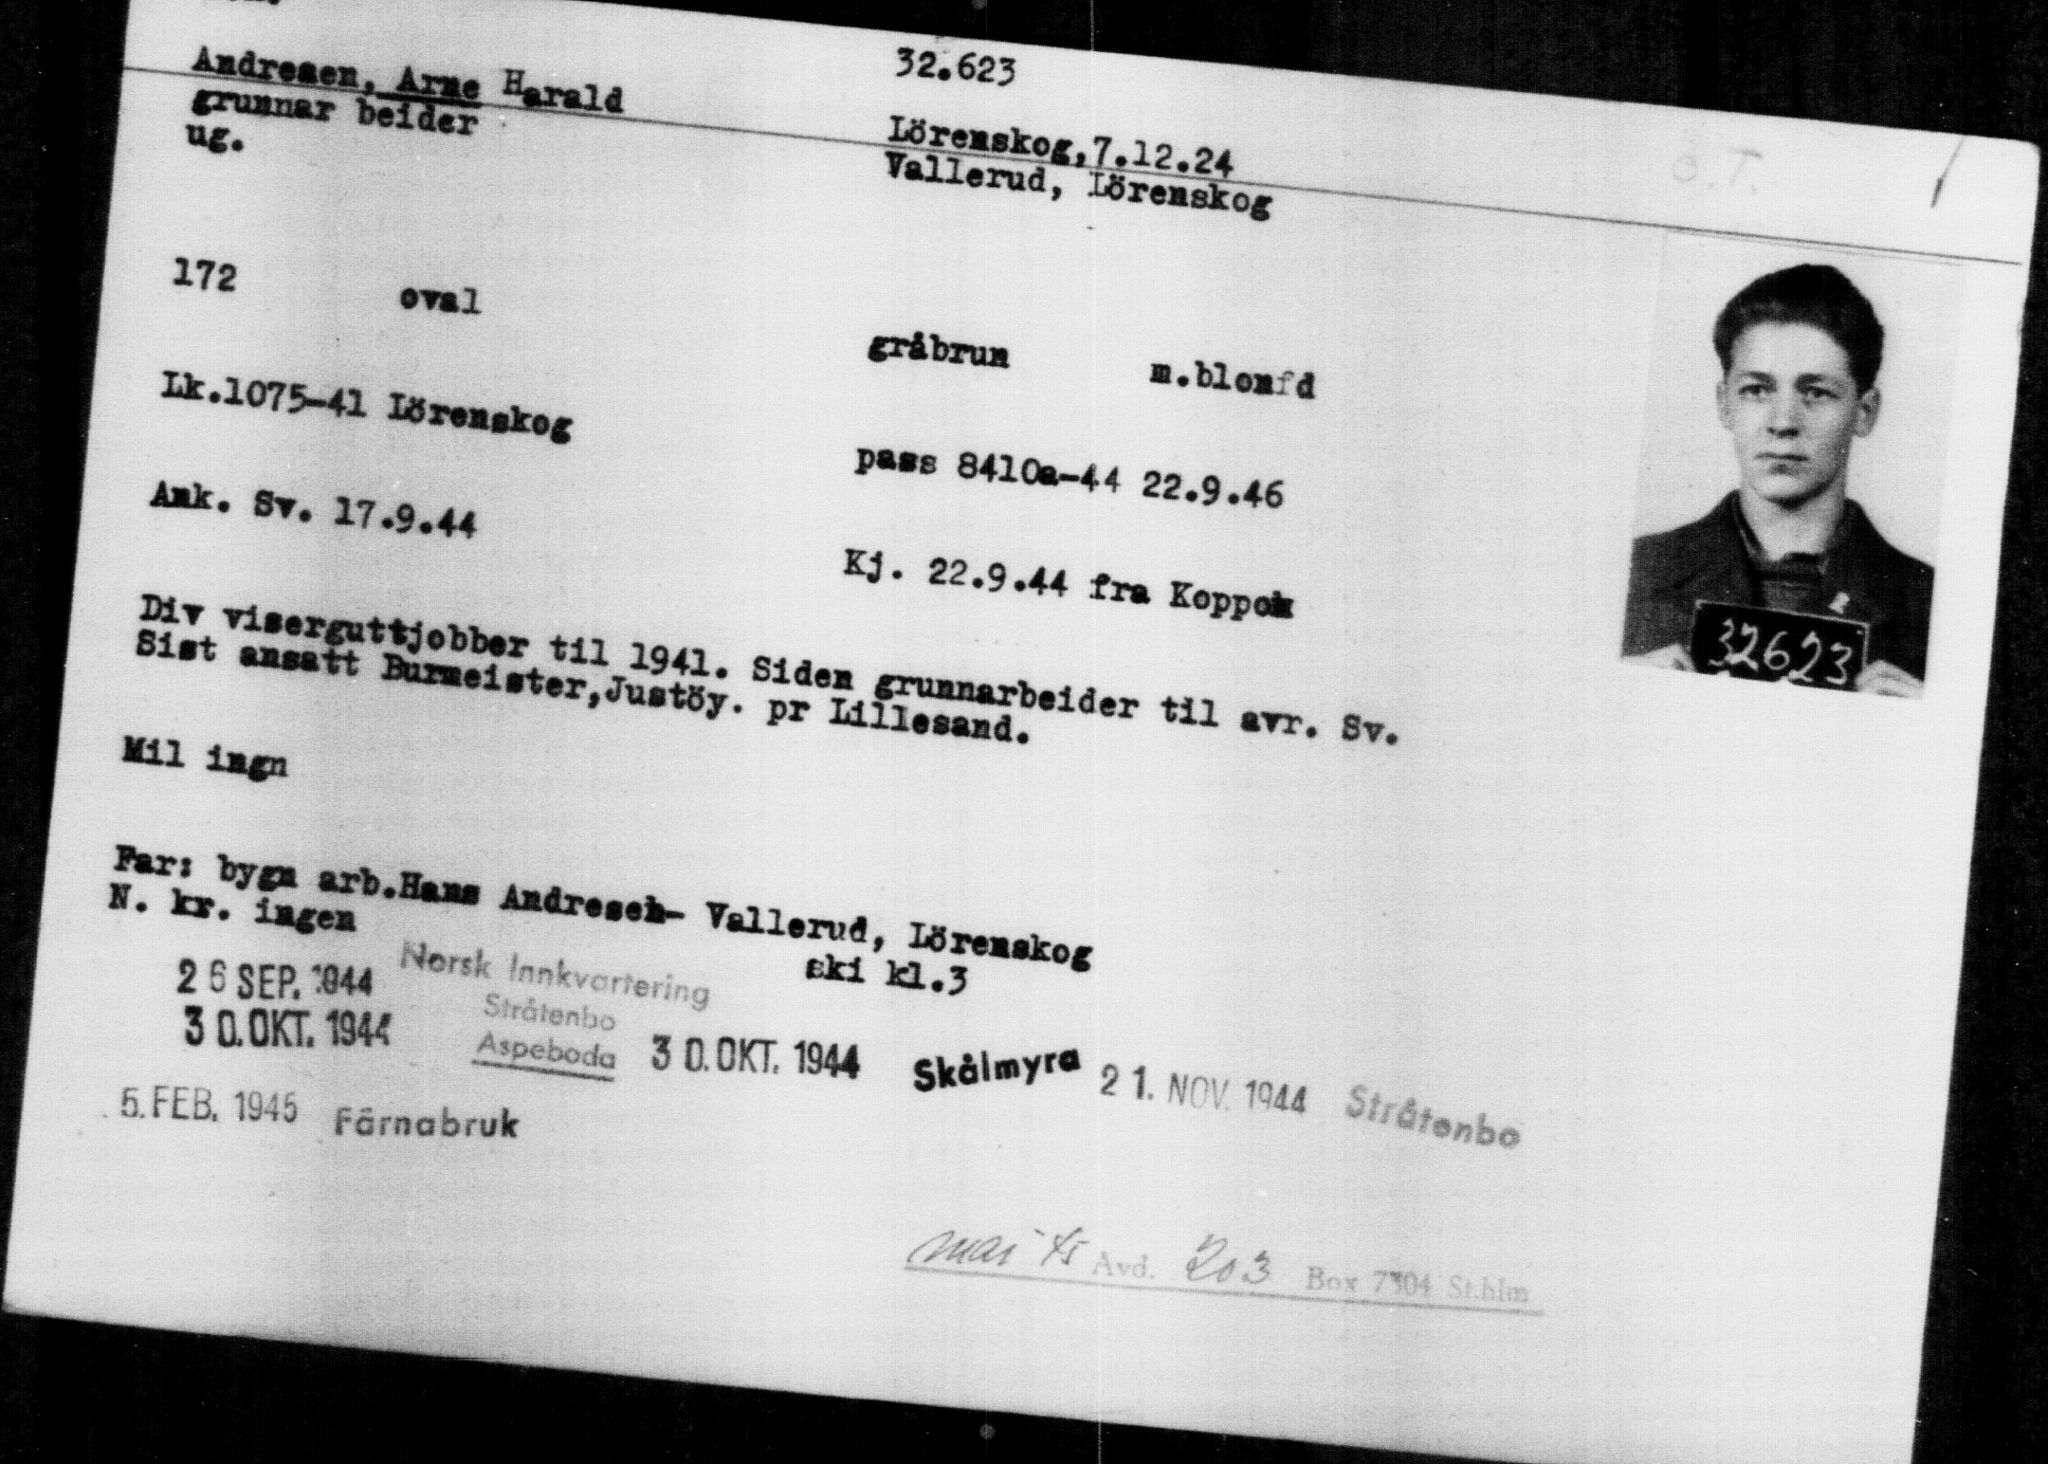 Andresen, Arne Harald
32.623
grunnar beider
Lörenskog,7.12.24
ug.
Vallerud, Lörenskog
172 oval
gråbrun m.blonfd
Lk.1075-41 Lörenskog
pass 8410a-44 22.9.46
Ank. Sv. 17.9.44
Kj. 22.9.44 fra Koppom
Div viserguttjobber til 1941. Siden grunnarbeider til avr. Sv.
Sist ansatt Burmeister,Justöy. pr Lillesand.
32623
Mil ingn
Far: bygn arb.Hans Andresen- Vallerud, Lörenskog
N. kr. ingen
ski kl.3
26 SEP. 1944 Norsk Innkvartering
Stråtenbo
Aspeboda
30.OKT. 1944
30.OKT. 1944 Skålmyra 21. NOV. 1944 Stråtenbo
5. FEB. 1945 Färnabruk
mai 45 Avd. 203 Box 7304 St.hlm